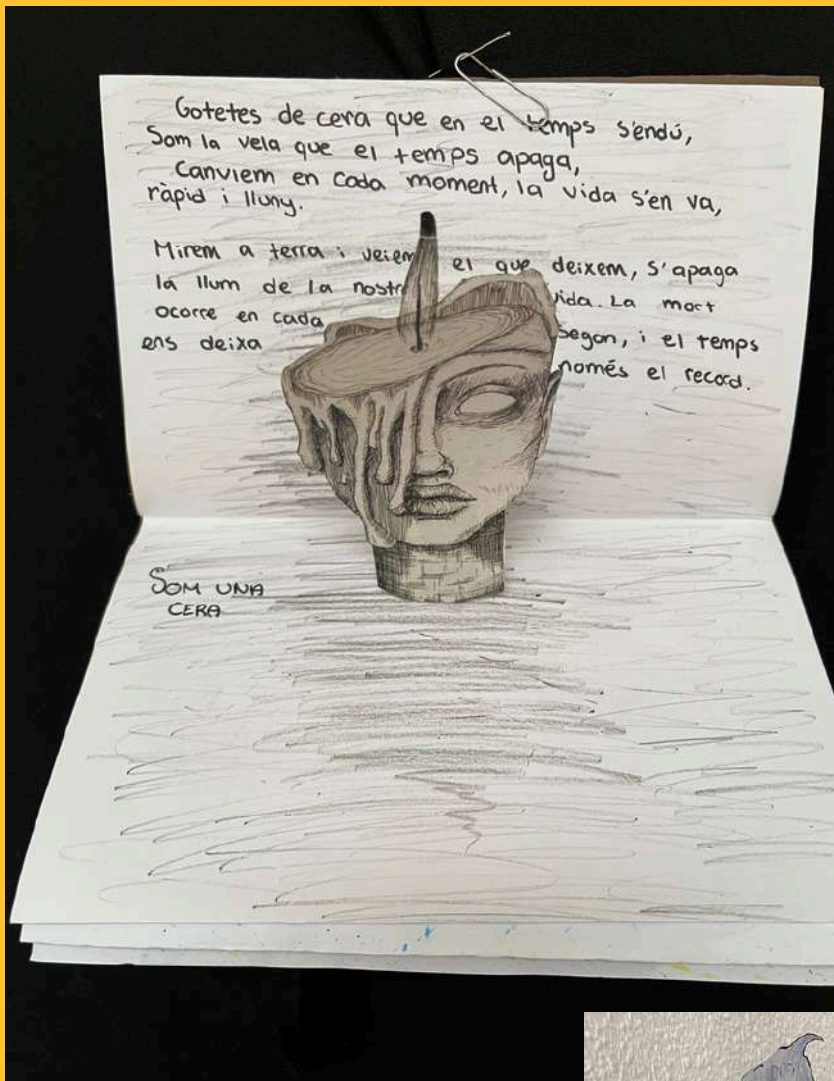 Gotetes de cera que en el temps s'endú,
Som la vela que el temps apaga,
Canviem en cada moment, la vida s'en va,
ràpid i lluny.
Mirem a terra i veiem el que deixem, s'apaga
la llum de la nostra vida. La mort
ocorre en cada segon, i el temps
ens deixa només el record.
SOM UNA
CERA